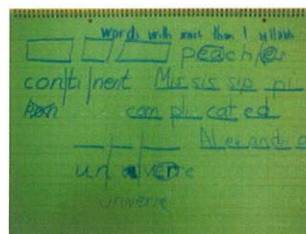 words with more than 1 syllable
peach/es
con/ti/nent Mis sis sip pi
com pli cat ed
Alexand
un verse
universe